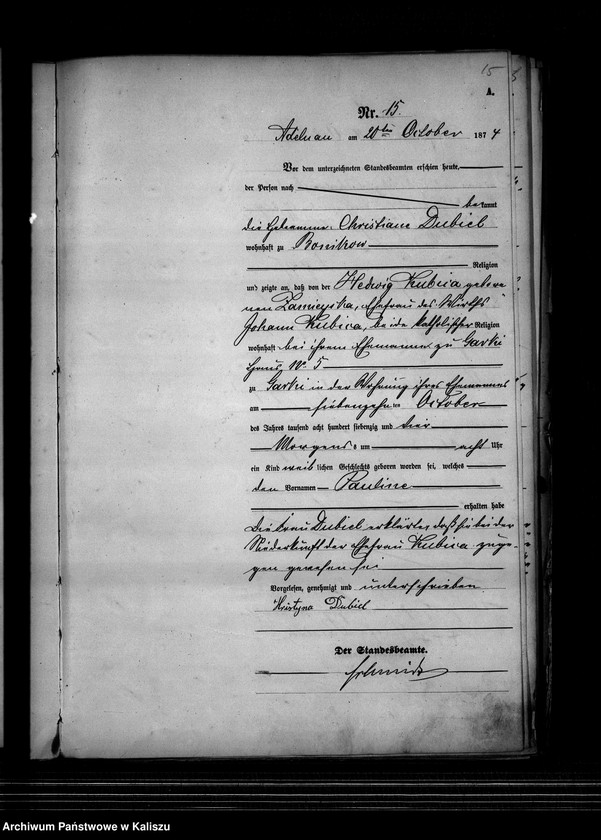 15
A.
Nr. 15.
Adelnau am 20ten October 1874
Vor dem unterzeichneten Standesbeamten erschien heute,
der Person nach
bekannt
die Hebamme Christiane Dubiel
wohnhaft zu Bonikow
Religion
und zeigte an, daß von der Hedwig Kubica gebore-
nen, Ehefrau des Wirths
Johann Kubica, beide katholischer Religion
wohnhaft bei ihrem Ehemanne zu Garki
Haus No 5
zu Garki in der Wohnung ihres Ehemannes
am siebenzehnten October
des Jahres tausend acht hundert siebenzig und vier
Morgens um acht Uhr
ein Kind weiblichen Geschlechts geboren worden sei, welches
den Vornamen Pauline
erhalten habe
Die Frau Dubiel erklärte, daß sie bei der
Niederkunft der Ehefrau Kubica zuge-
gen gewesen sei
Vorgelesen, genehmigt und unterschrieben
Kristyna Dubiel
Der Standesbeamte.
Schmidt
Archiwum Państwowe w Kaliszu